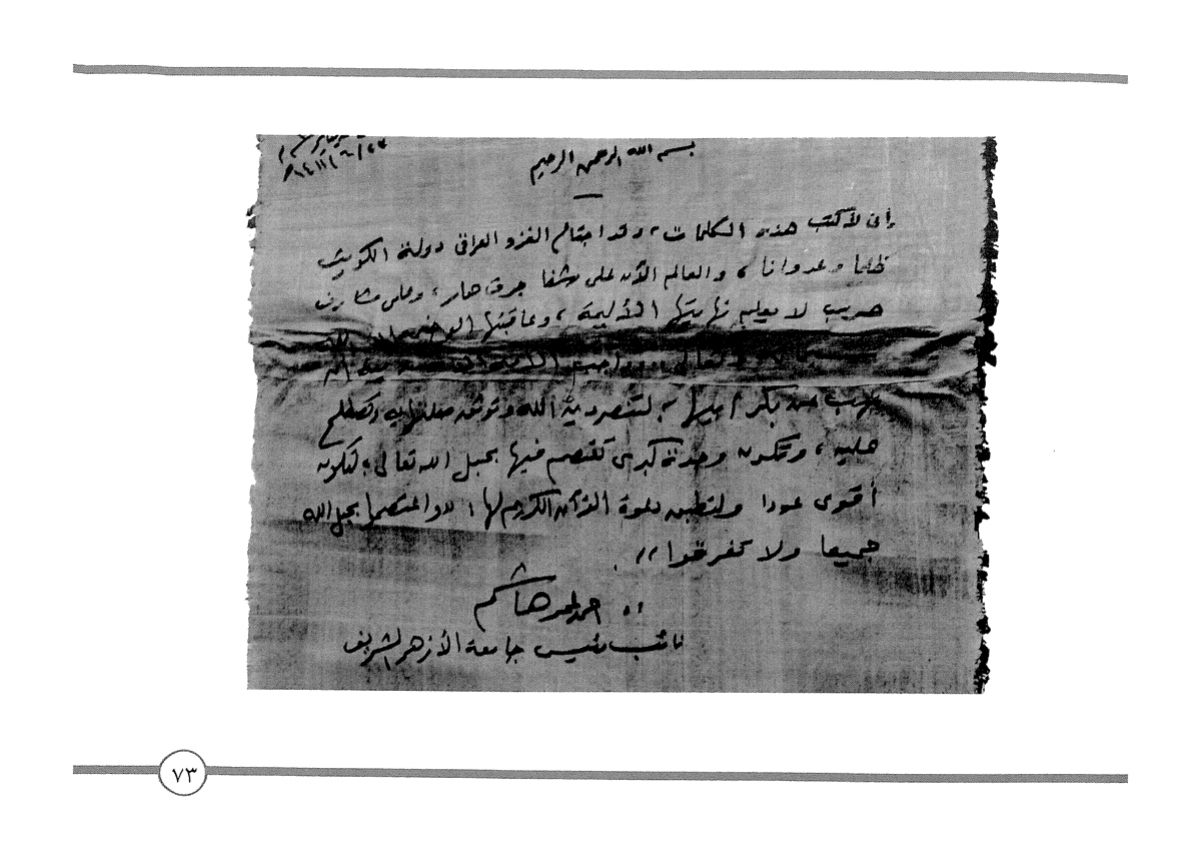 بسم الله الرحمن الرحيم
١٤١١/٦/٢٣هـ
إنى لأكتب هذه الكلمات، وقد اجتاح الغزو العراقى دولة الكويت
ظلما وعدوانا، والعالم الآن على شفا جرف هار، وعلى مشارف
حرب لا يعلم نهايتها الأليمة، وعاقبتها
وتعالى. وواجب
تهب عن بكرة أبيها، لتنصر دين الله وتوثق
عليه، وتكون وحدة كبرى تعتصم فيها بحبل الله تعالى؛ لتكون
أقوى عودا ولتطبق دعوة القرآن الكريم لها: "واعتصموا بحبل الله
جميعا ولا تفرقوا".
أ.د. أحمد عمر هاشم
نائب رئيس جامعة الأزهر الشريف
٧٣